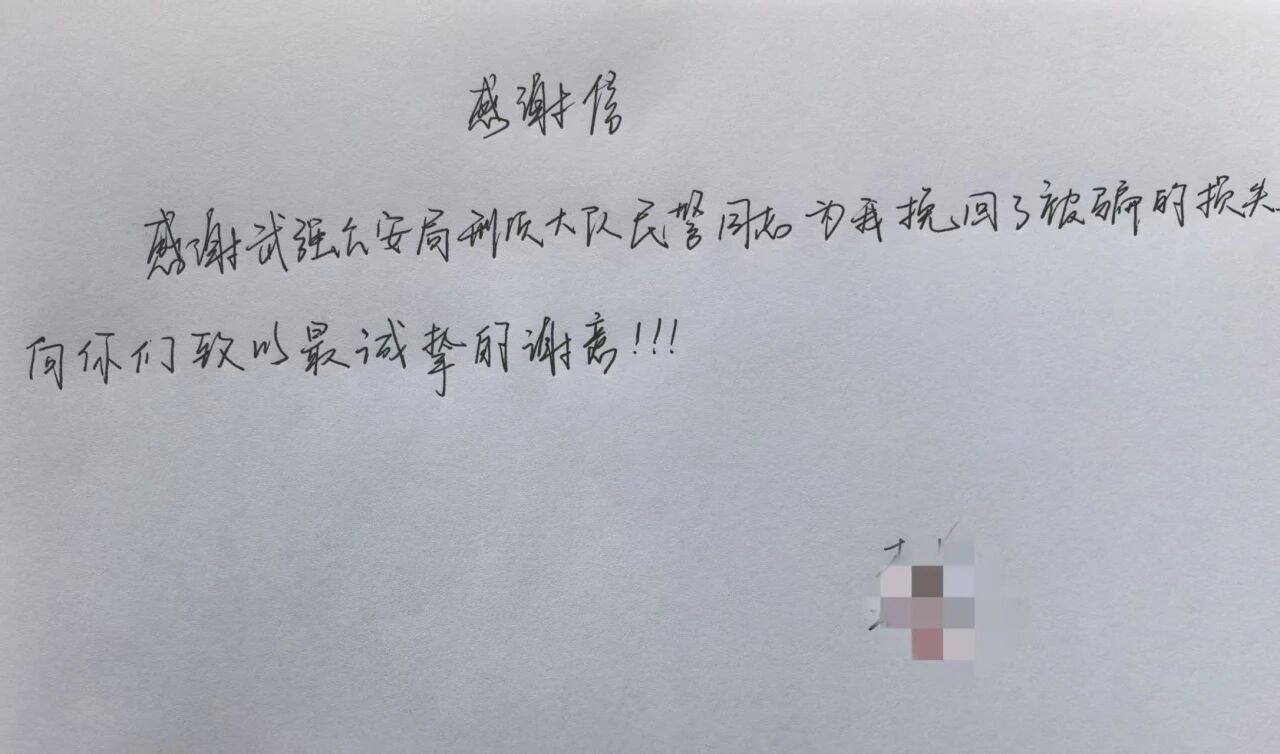 感谢信
感谢武强公安局刑侦大队民警同志为我挽回了被骗的损失.
向你们致以最诚挚的谢意!!!